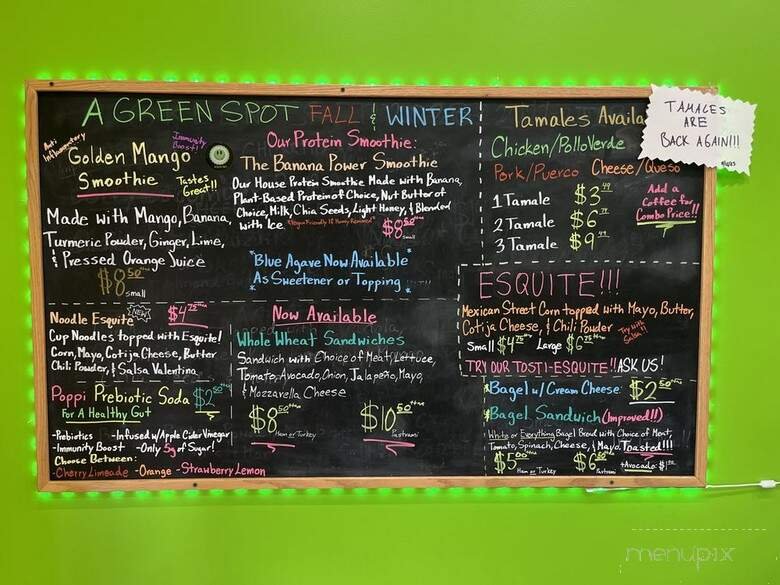 A GREEN SPOT FALL & WINTER
Anti Inflammatory
Immunity Boost!
Golden Mango
Smoothie
Tastes Great!!
Made with Mango, Banana,
Turmeric Powder, Ginger, Lime,
& Pressed Orange Juice
$8.50
small
Our Protein Smoothie:
The Banana Power Smoothie
Our House Protein Smoothie Made with Banana,
Plant-Based Protein of Choice, Nut Butter of
Choice, Milk, Chia Seeds, Light Honey, & Blended
with Ice *Vegan Friendly If Honey Removed*
$8.50
small
*Blue Agave Now Available*
As Sweetener or Topping
Tamales Availa
TAMALES
ARE
BACK AGAIN!!!
Chicken/Pollo Verde
Pork/Puerco Cheese/Queso
1 Tamale $3
2 Tamale $6
3 Tamale $9
Add a
Coffee for
Combo Price!!
Noodle Esquite NEW $4.75
Cup Noodles topped with Esquite!
Corn, Mayo, Cotija Cheese, Butter
Chili Powder, & Salsa Valentina
Poppi Prebiotic Soda $2
For A Healthy Gut
-Prebiotics -Infused w/Apple Cider Vinegar
-Immunity Boost -Only 5g of Sugar!
Choose Between:
-Cherry Limeade -Orange -Strawberry Lemon
Now Available
Whole Wheat Sandwiches
Sandwich with Choice of Meat, Lettuce,
Tomato, Avocado, Onion, Jalapeño, Mayo,
& Mozzarella Cheese
$8.50 Ham or Turkey
$10.50 Pastrami
ESQUITE!!!
Mexican Street Corn topped with Mayo, Butter,
Cotija Cheese, & Chili Powder
Try with Salsa!!
Small $4.75 Large $6.75
TRY OUR TOSTI-ESQUITE!! ASK US!
*Bagel w/Cream Cheese: $2.50
*Bagel Sandwich (Improved!!)
White or Everything Bagel Bread with Choice of Meat,
Tomato, Spinach, Cheese, & Mayo. Toasted!!!
$5.00 Ham or Turkey
$6 Pastrami
+Avocado: $1
menupix